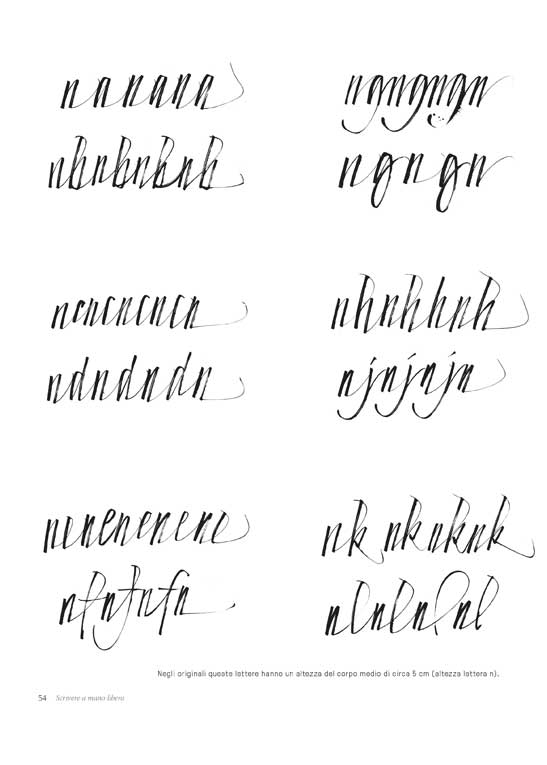 nanana
nbnbnbnb
ncncncncn
ndndndn
nenenenene
nfnfnfn
ngngngn
ngngn
nhnhhnh
njnjnjn
nk nknknk
nlnlnlnl
Negli originali queste lettere hanno un altezza del corpo medio di circa 5 cm (altezza lettera n).
54 Scrivere a mano libera